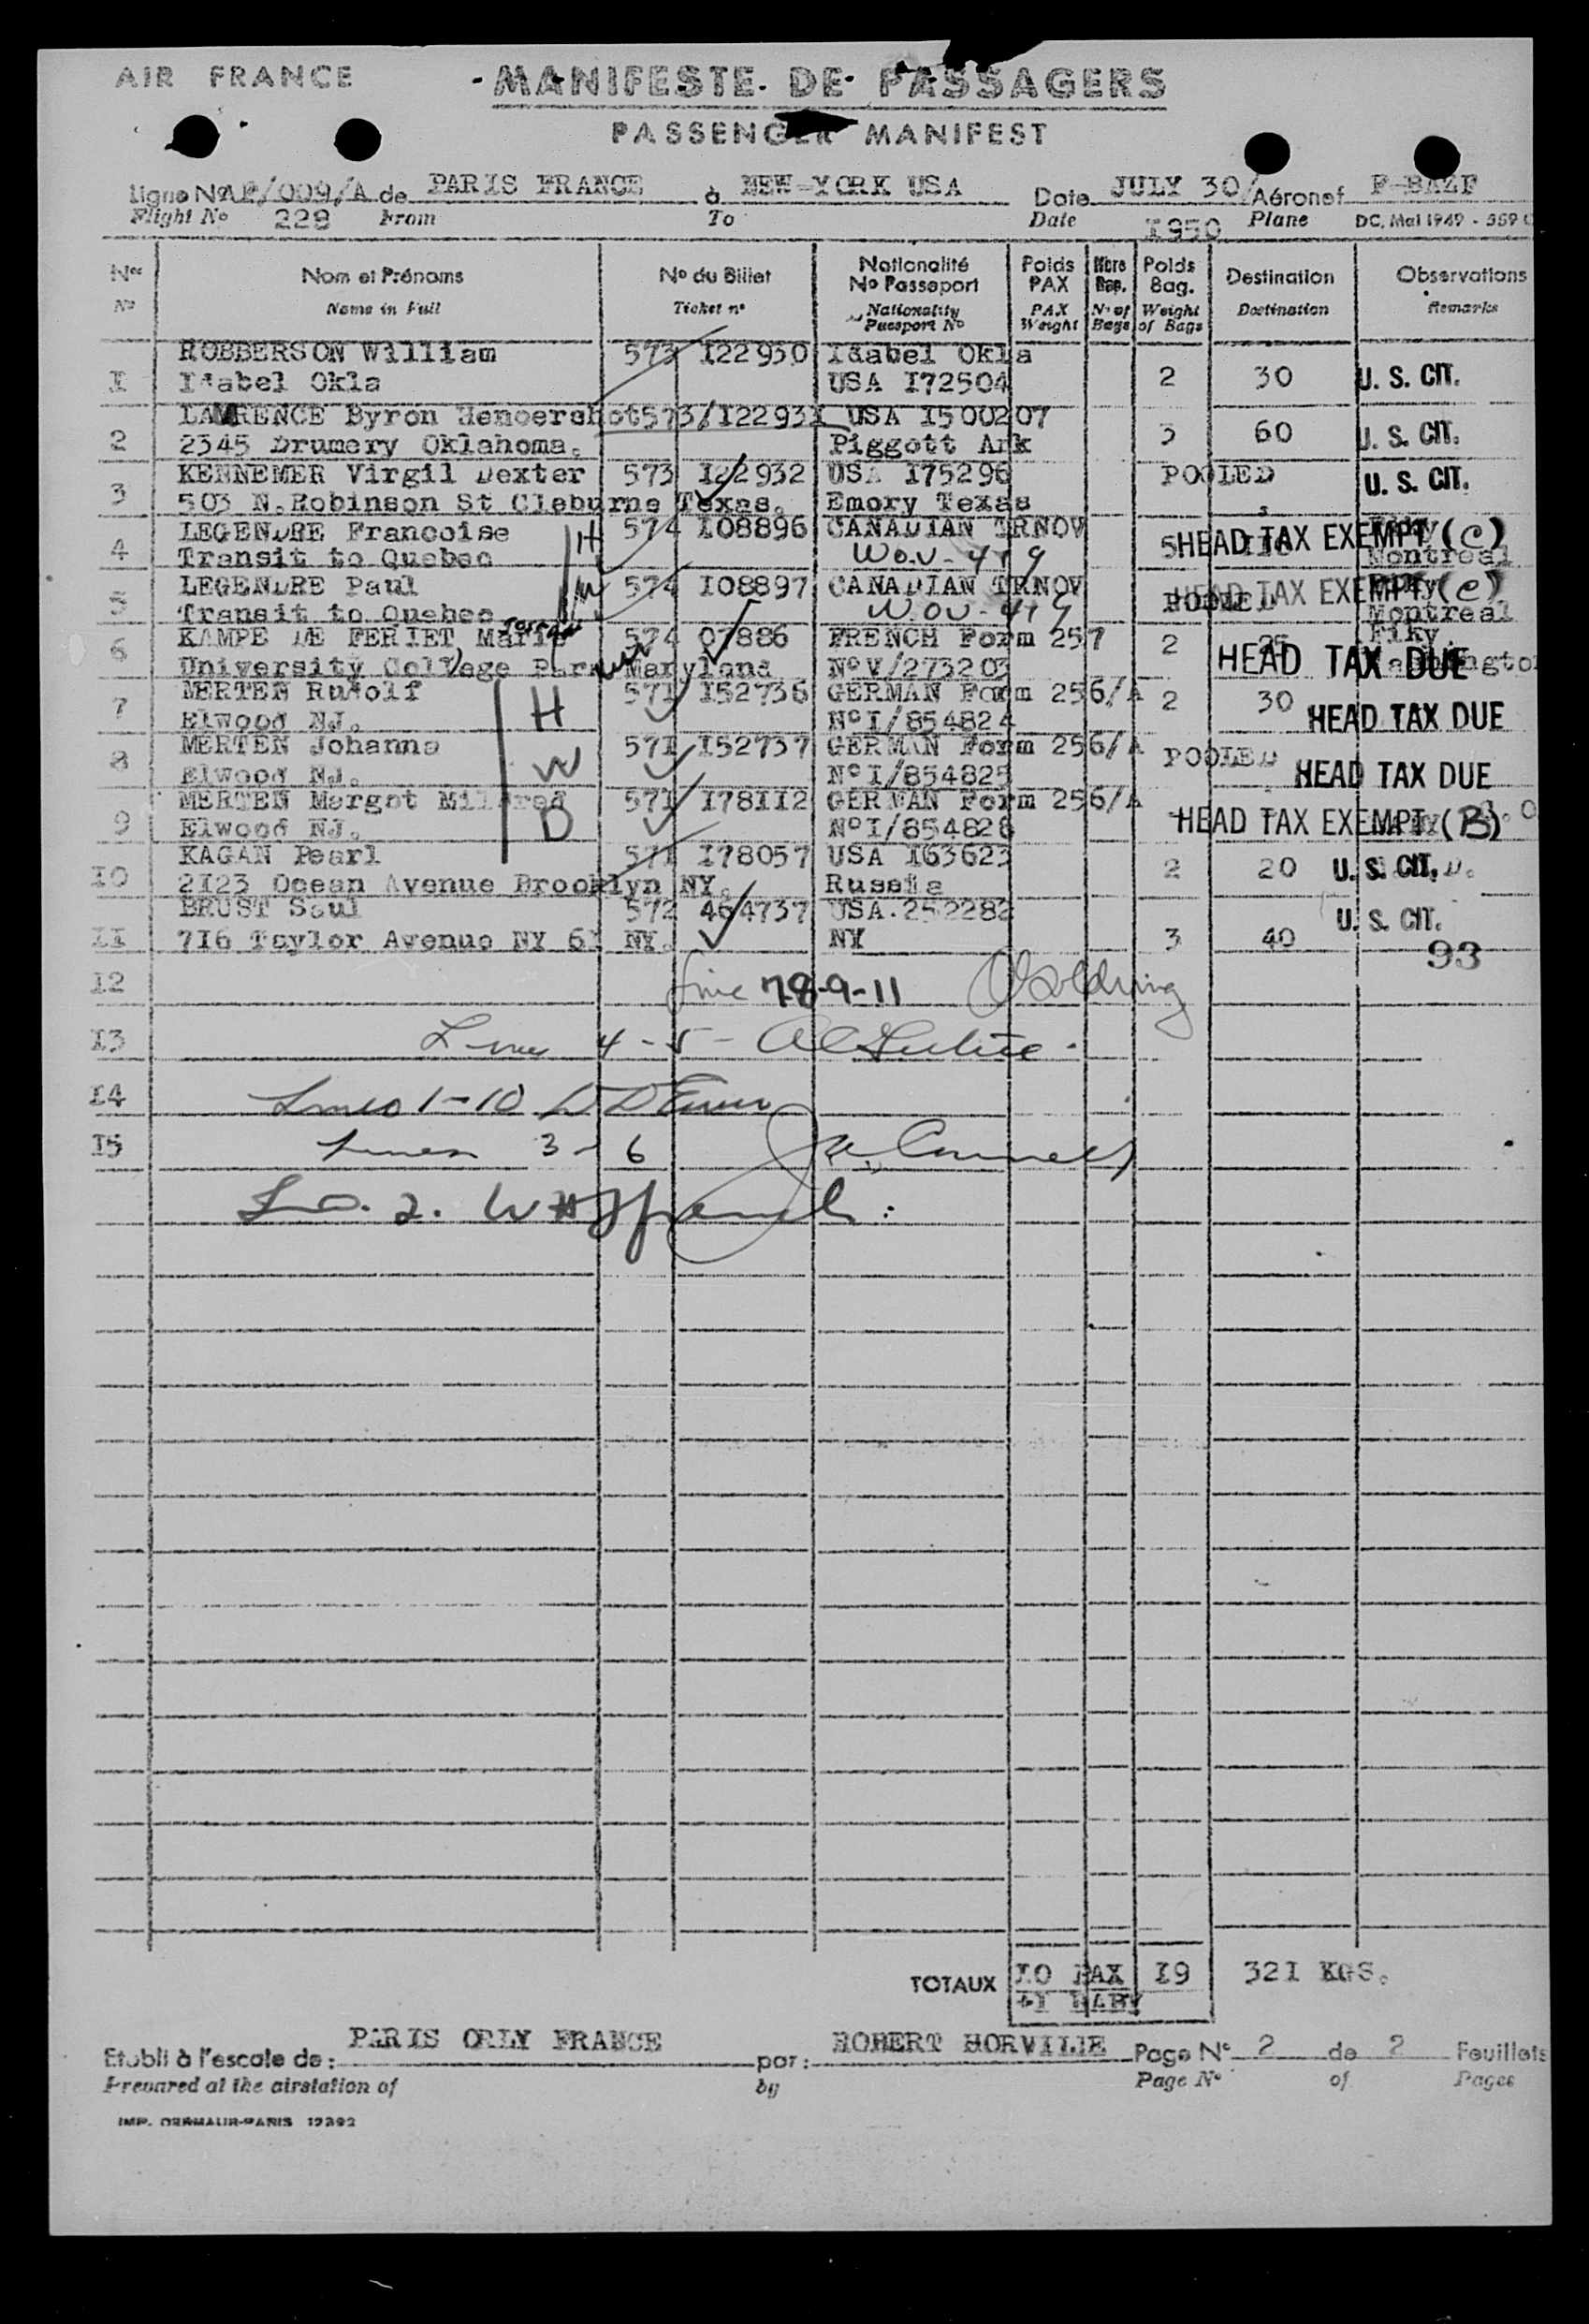 AIR FRANCE
MANIFESTE DE PASSAGERS
PASSENGER MANIFEST
Ligne No AF/009/A de PARIS FRANCE à NEW-YORK USA Date JULY 30/ Aéronef F-BAZF
Flight No 229 From To Date 1950 Plane DC. Mai 1949 - 359
Nos Nom et Prénoms No du Billet Nationalité No Passeport Poids PAX Nbre Bag. Poids Bag. Destination Observations
No Name in Full Ticket no Nationality Passport No PAX Weight No of Bags Weight of Bags Destination Remarks
ROBBERSON William 573 I22930 Idabel Okla
I Idabel Okla USA I72504 2 30 U. S. CIT.
LAWRENCE Byron Hendershot 573/I2293I USA I500207
2 2345 Drumery Oklahoma. Piggott Ark 3 60 U. S. CIT.
KENNEMER Virgil Dexter 573 I22932 USA I75296 POOLED
3 503 N.Robinson St Cleburne Texas. Emory Texas U. S. CIT.
LEGENDRE Francoise H 574 I08896 CANADIAN TRNOV
4 Transit to Quebec W.O.V - 419 5 HEAD TAX EXEMPT (C) Montreal
LEGENDRE Paul W 574 I08897 CANADIAN TRNOV
5 Transit to Quebec W.OV - 419 POOLED HEAD TAX EXEMPT (C) Montreal
KAMPE DE FERIET Marie 574 07886 FRENCH Form 257 Fiky
6 University College Park Maryland No V/273203 2 25 HEAD TAX DUE Washington
MERTEN Rudolf 57I I52736 GERMAN Form 256/A
7 Elwood NJ. H No I/854824 2 30 HEAD TAX DUE
MERTEN Johanna 57I I52737 GERMAN Form 256/A
8 Elwood NJ. W No I/854825 POOLED HEAD TAX DUE
MERTEN Margot Mildred 57I I78II2 GERMAN Form 256/A
9 Elwood NJ. D No I/854826 HEAD TAX EXEMPT (B)
KAGAN Pearl 57I I78057 USA I63623
I0 2I23 Ocean Avenue Brooklyn NY. Russia 2 20 U. S. CIT.
BRUST Saul 572 464737 USA.252282 U. S. CIT.
II 7I6 Taylor Avenue NY 6I NY. NY 3 40 93
I2 Line 78-9-11
I3 Line 4-5-
I4 Lines 1-10
I5 Lines 3-6
2.
TOTAUX I0 PAX I9 32I KGS.
+I BABY
Etabli à l'escale de : PARIS ORLY FRANCE par : ROBERT HORVILLE Page No 2 de 2 Feuillets
Prepared at the airstation of by Page No of Pages
IMP. DERMAUR-PARIS 12392